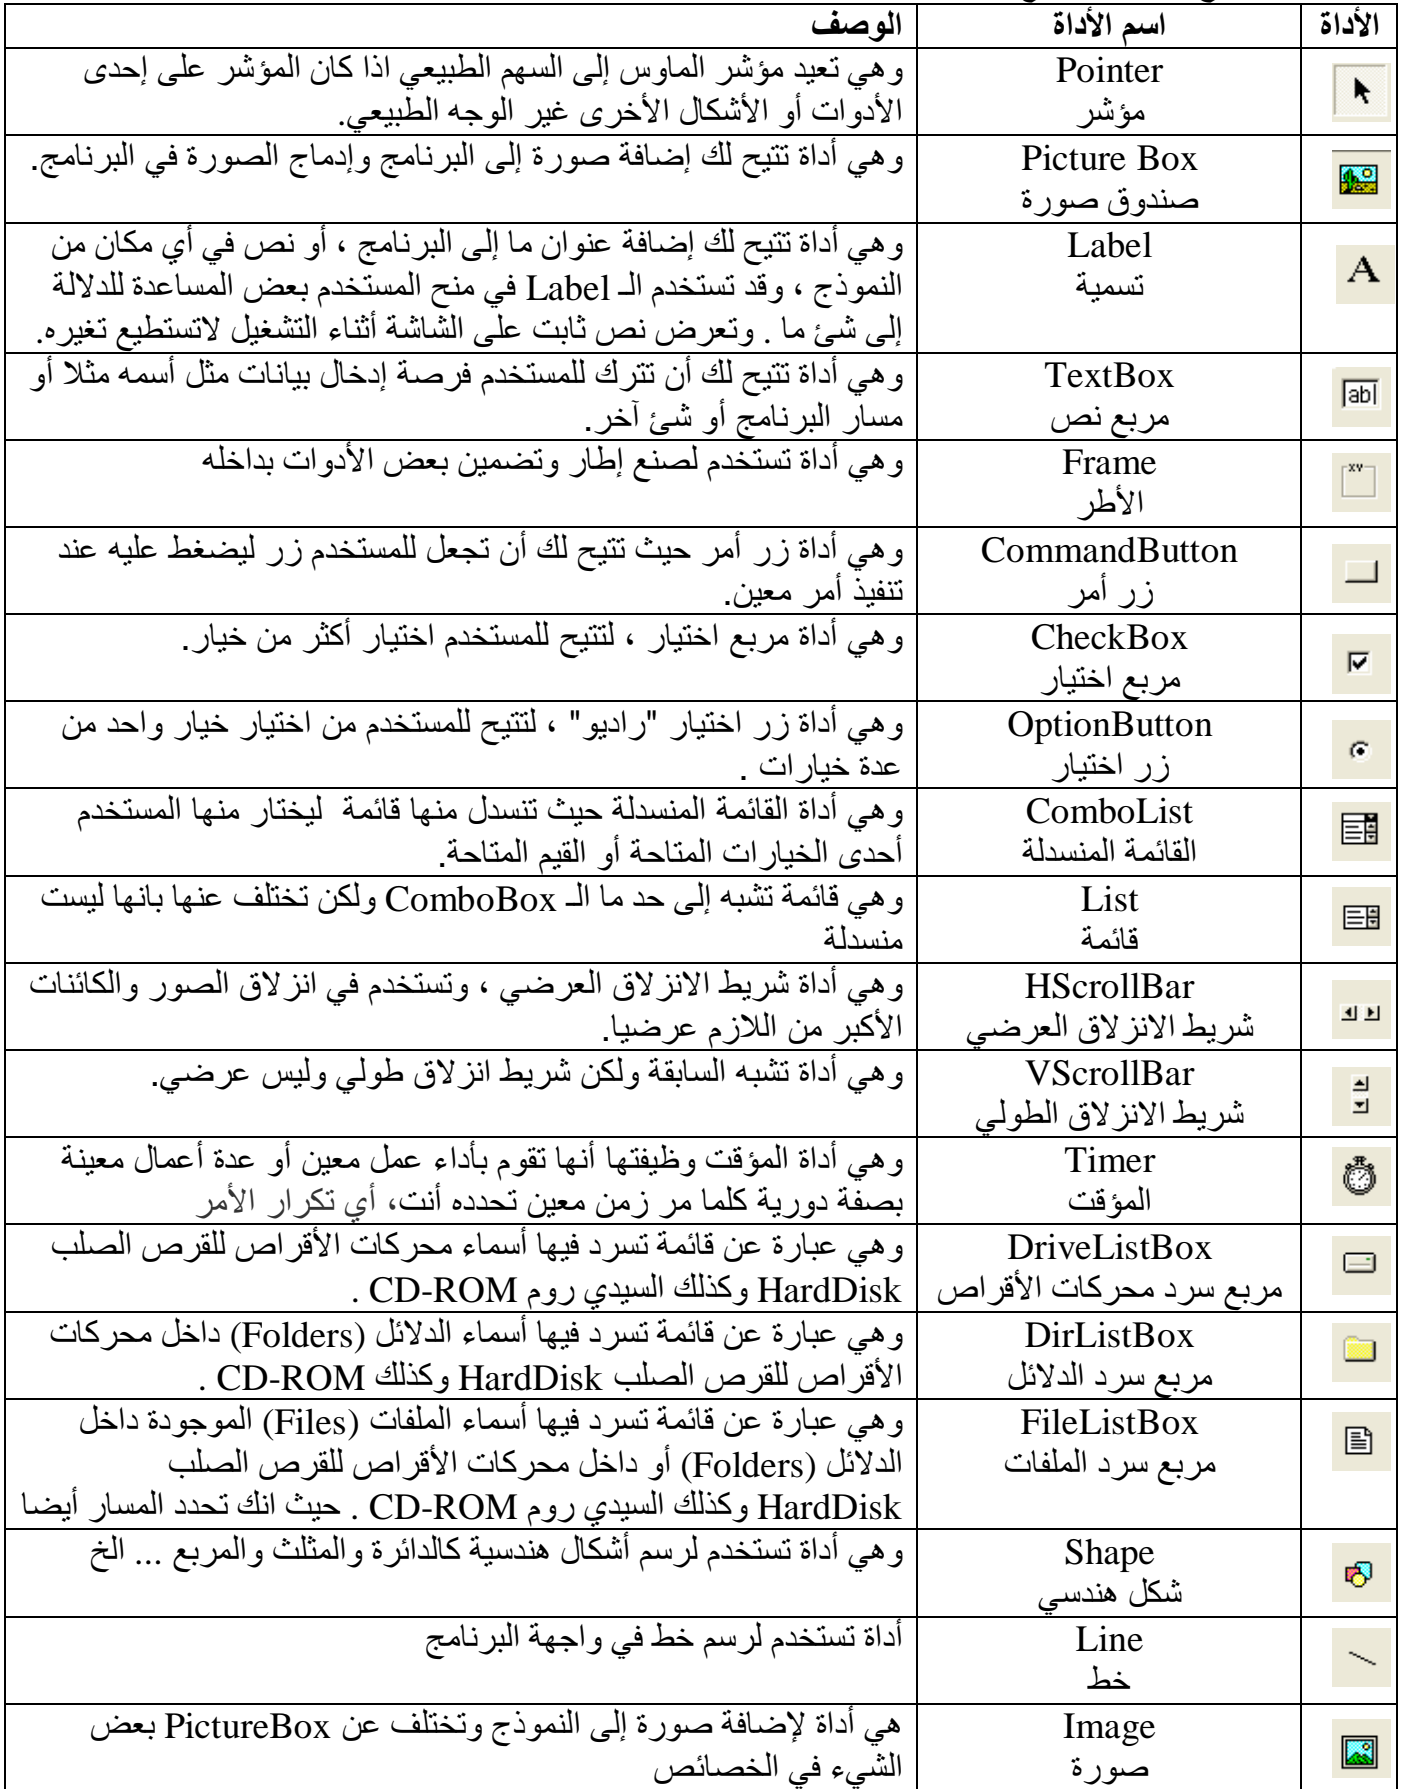 الأداة
اسم الأداة
الوصف
Pointer
مؤشر
وهي تعيد مؤشر الماوس إلى السهم الطبيعي اذا كان المؤشر على إحدى
الأدوات أو الأشكال الأخرى غير الوجه الطبيعي.
Picture Box
صندوق صورة
وهي أداة تتيح لك إضافة صورة إلى البرنامج وإدماج الصورة في البرنامج.
A
Label
تسمية
وهي أداة تتيح لك إضافة عنوان ما إلى البرنامج ، أو نص في أي مكان من
النموذج ، وقد تستخدم الـ Label في منح المستخدم بعض المساعدة للدلالة
إلى شئ ما . وتعرض نص ثابت على الشاشة أثناء التشغيل لاتستطيع تغيره.
abl
TextBox
مربع نص
وهي أداة تتيح لك أن تترك للمستخدم فرصة إدخال بيانات مثل أسمه مثلا أو
مسار البرنامج أو شئ آخر.
xy
Frame
الأطر
وهي أداة تستخدم لصنع إطار وتضمين بعض الأدوات بداخله
CommandButton
زر أمر
وهي أداة زر أمر حيث تتيح لك أن تجعل للمستخدم زر ليضغط عليه عند
تنفيذ أمر معين.
CheckBox
مربع اختيار
وهي أداة مربع اختيار ، لتتيح للمستخدم اختيار أكثر من خيار.
OptionButton
زر اختيار
وهي أداة زر اختيار "راديو" ، لتتيح للمستخدم من اختيار خيار واحد من
عدة خيارات .
ComboList
القائمة المنسدلة
وهي أداة القائمة المنسدلة حيث تنسدل منها قائمة ليختار منها المستخدم
أحدى الخيارات المتاحة أو القيم المتاحة.
List
قائمة
وهي قائمة تشبه إلى حد ما الـ ComboBox ولكن تختلف عنها بانها ليست
منسدلة
HScrollBar
شريط الانزلاق العرضي
وهي أداة شريط الانزلاق العرضي ، وتستخدم في انزلاق الصور والكائنات
الأكبر من اللازم عرضيا.
VScrollBar
شريط الانزلاق الطولي
وهي أداة تشبه السابقة ولكن شريط انزلاق طولي وليس عرضي.
Timer
المؤقت
وهي أداة المؤقت وظيفتها أنها تقوم بأداء عمل معين أو عدة أعمال معينة
بصفة دورية كلما مر زمن معين تحدده أنت، أي تكرار الأمر
DriveListBox
مربع سرد محركات الأقراص
وهي عبارة عن قائمة تسرد فيها أسماء محركات الأقراص للقرص الصلب
HardDisk وكذلك السيدي روم CD-ROM .
DirListBox
مربع سرد الدلائل
وهي عبارة عن قائمة تسرد فيها أسماء الدلائل (Folders) داخل محركات
الأقراص للقرص الصلب HardDisk وكذلك CD-ROM .
FileListBox
مربع سرد الملفات
وهي عبارة عن قائمة تسرد فيها أسماء الملفات (Files) الموجودة داخل
الدلائل (Folders) أو داخل محركات الأقراص للقرص الصلب
HardDisk وكذلك السيدي روم CD-ROM . حيث انك تحدد المسار أيضا
Shape
شكل هندسي
وهي أداة تستخدم لرسم أشكال هندسية كالدائرة والمثلث والمربع ... الخ
Line
خط
أداة تستخدم لرسم خط في واجهة البرنامج
Image
صورة
هي أداة لإضافة صورة إلى النموذج وتختلف عن PictureBox بعض
الشيء في الخصائص